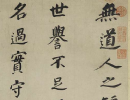 無道人之短
世譽不足
名過實守